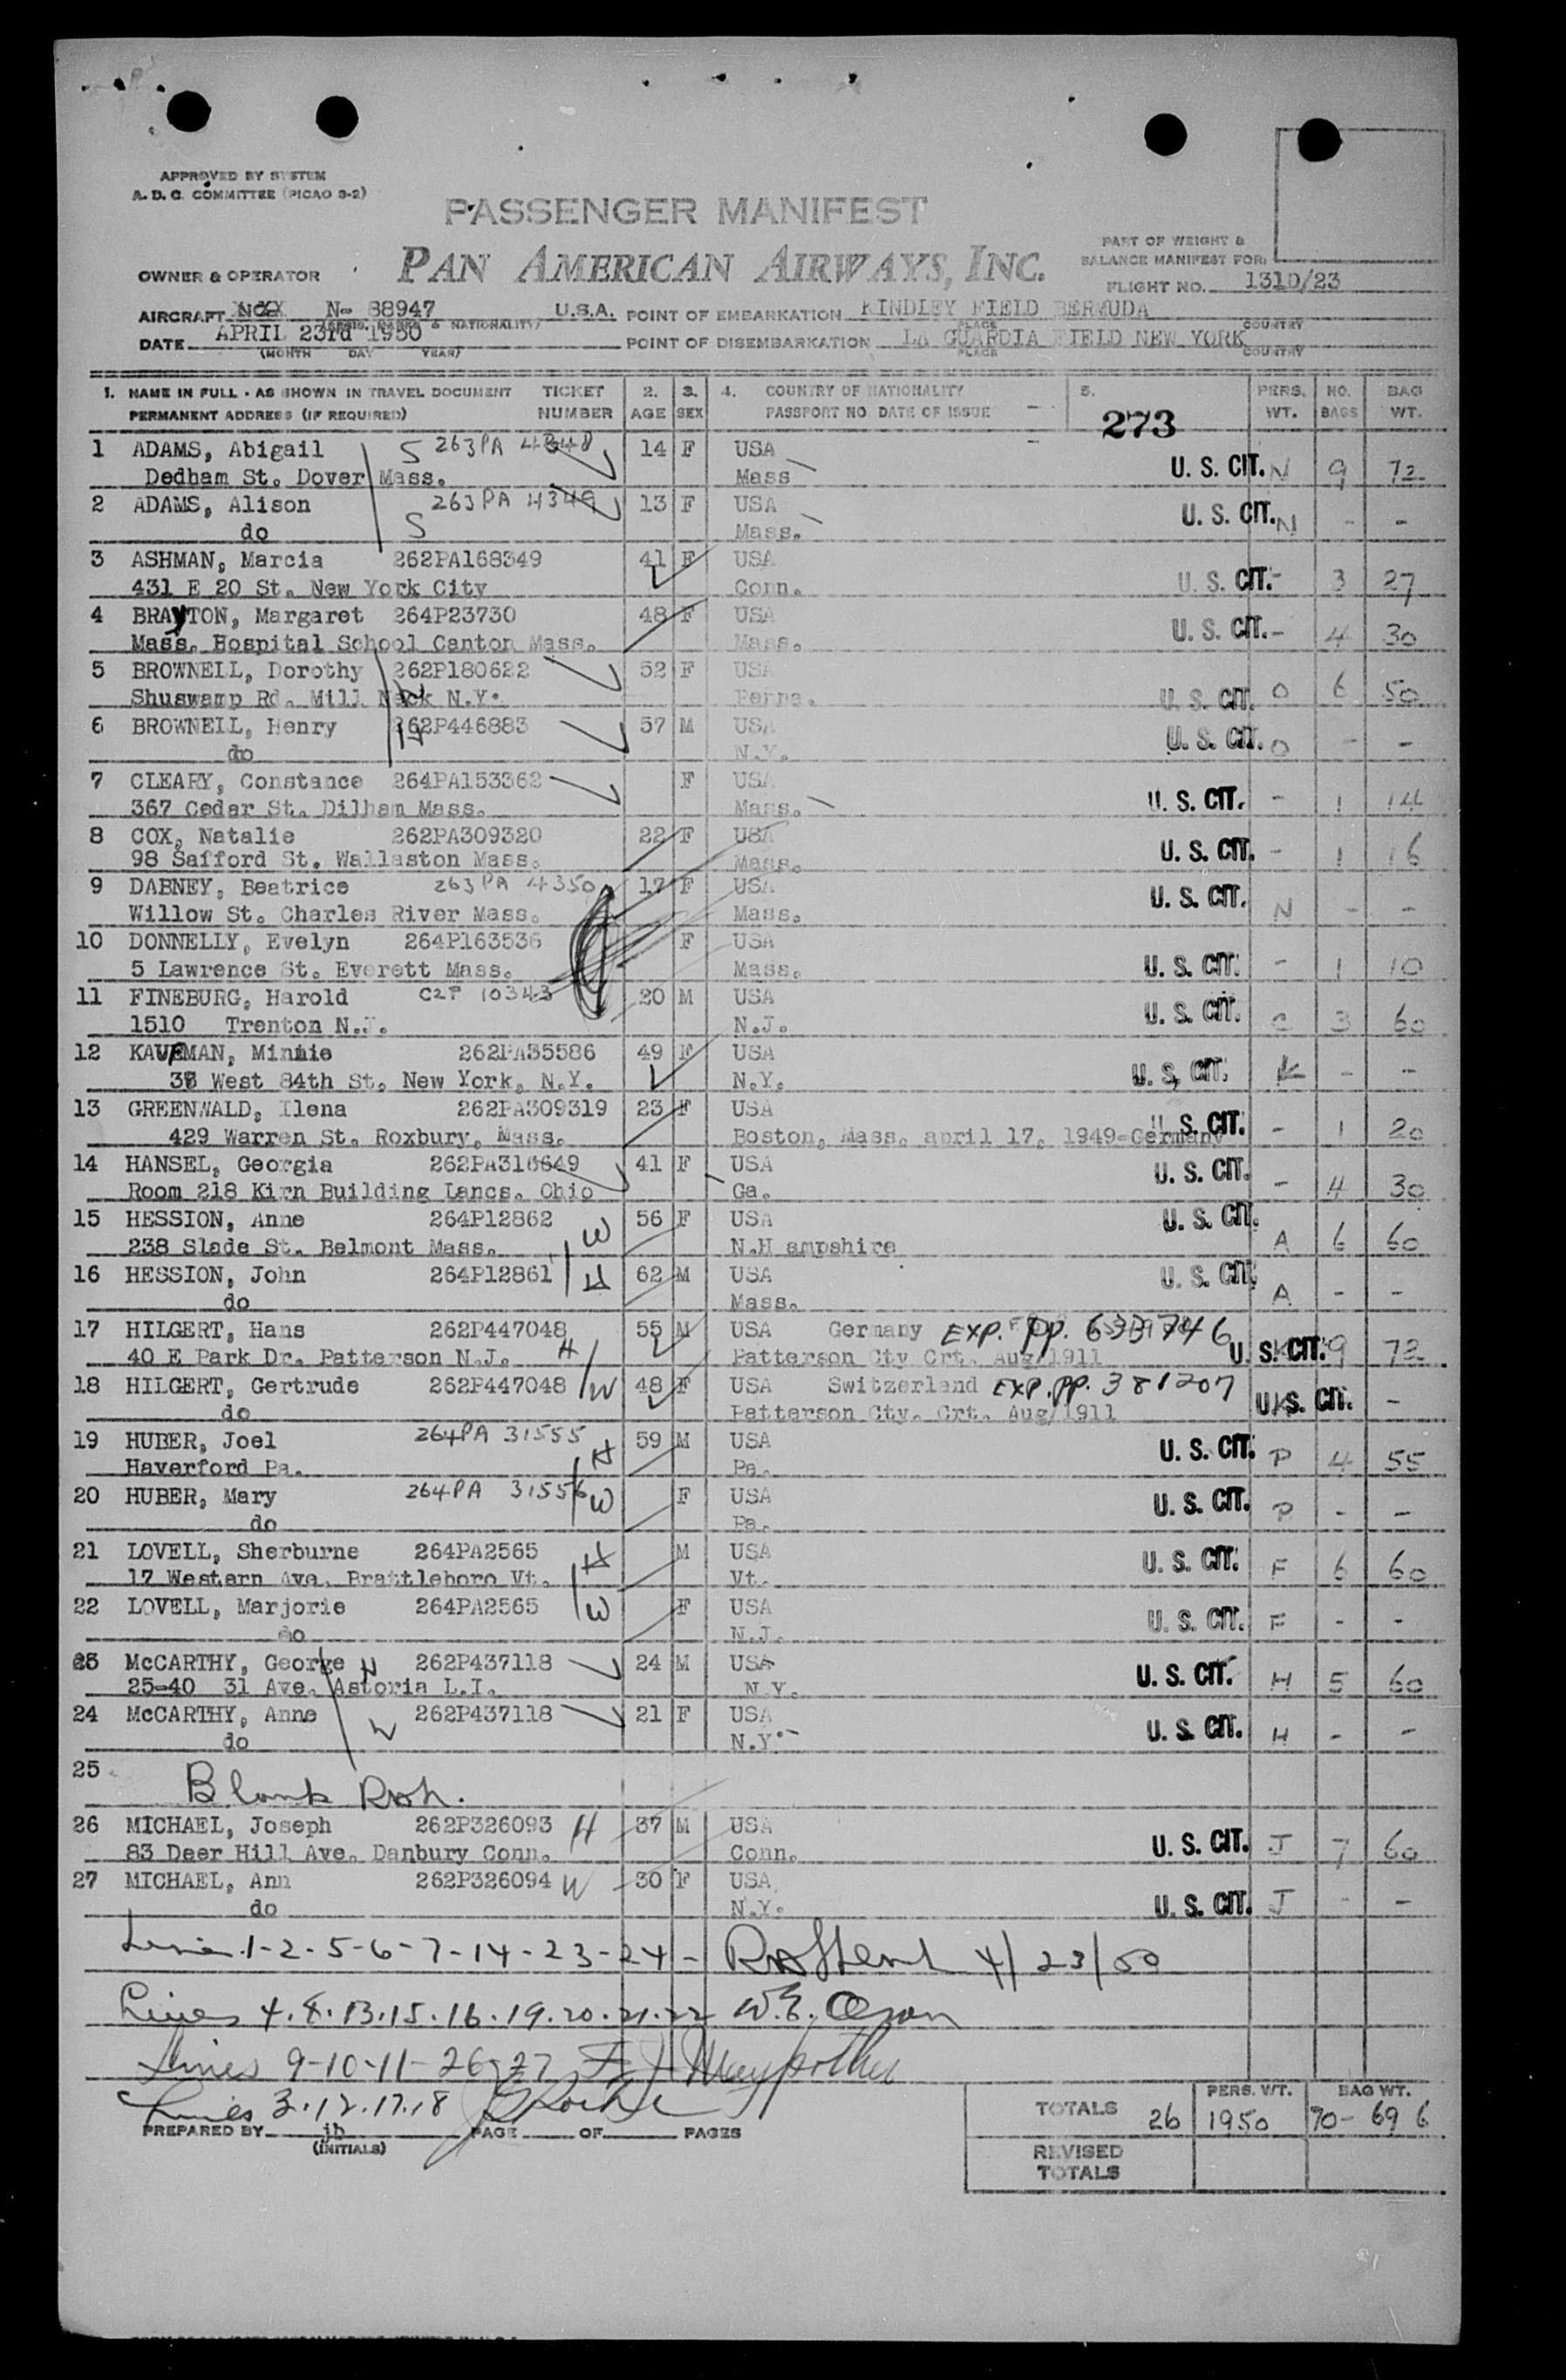 APPROVED BY SYSTEM
A. D. C. COMMITTEE (PICAO 3-2)
PASSENGER MANIFEST
PAN AMERICAN AIRWAYS, INC.
PART OF WEIGHT &
BALANCE MANIFEST FOR:
OWNER & OPERATOR
FLIGHT NO. 131D/23
AIRCRAFT N- 88947 U.S.A. POINT OF EMBARKATION KINDLEY FIELD BERMUDA
(REGIS. MARKS & NATIONALITY) PLACE COUNTRY
DATE APRIL 23rd 1950 POINT OF DISEMBARKATION LA GUARDIA FIELD NEW YORK
(MONTH DAY YEAR) PLACE COUNTRY
1. NAME IN FULL - AS SHOWN IN TRAVEL DOCUMENT TICKET 2. 3. 4. COUNTRY OF NATIONALITY 5. PERS. NO. BAG
PERMANENT ADDRESS (IF REQUIRED) NUMBER AGE SEX PASSPORT NO. DATE OF ISSUE 273 WT. BAGS WT.
1 ADAMS, Abigail S 263PA 4348 14 F USA
Dedham St. Dover Mass. Mass U. S. CIT. N 9 72
2 ADAMS, Alison 263PA 4349 13 F USA
do S Mass. U. S. CIT. N - -
3 ASHMAN, Marcia 262PA168349 41 F USA
431 E 20 St. New York City Conn. U. S. CIT. - 3 27
4 BRAYTON, Margaret 264P23730 48 F USA
Mass. Hospital School Canton Mass. Mass. U. S. CIT. - 4 30
5 BROWNELL, Dorothy 262P180622 52 F USA
Shuswamp Rd. Mill Neck N.Y. W Penna. U. S. CIT. O 6 50
6 BROWNELL, Henry 262P446883 57 M USA
do H N.Y. U. S. CIT. O - -
7 CLEARY, Constance 264PA153362 F USA
367 Cedar St. Dilham Mass. Mass. U. S. CIT. - 1 14
8 COX, Natalie 262PA309320 22 F USA
98 Safford St. Wallaston Mass. Mass. U. S. CIT. - 1 16
9 DABNEY, Beatrice 263PA 4350 17 F USA
Willow St. Charles River Mass. Mass. U. S. CIT. N - -
10 DONNELLY, Evelyn 264P163536 F USA
5 Lawrence St. Everett Mass. Mass. U. S. CIT. - 1 10
11 FINEBURG, Harold C2P 10343 20 M USA
1510 Trenton N.J. N.J. U. S. CIT. C 3 60
12 KAUFMAN, Minnie 262PA35586 49 F USA
38 West 84th St. New York, N.Y. N.Y. U. S. CIT. K - -
13 GREENWALD, Ilena 262PA309319 23 F USA
429 Warren St. Roxbury, Mass. Boston, Mass. april 17, 1949-Germany U. S. CIT. - 1 20
14 HANSEL, Georgia 262PA316649 41 F USA
Room 218 Kirn Building Lancs. Ohio Ga. U. S. CIT. - 4 30
15 HESSION, Anne 264P12862 W 56 F USA
238 Slade St. Belmont Mass. N.H ampshire U. S. CIT. A 6 60
16 HESSION, John 264P12861 H 62 M USA
do Mass. U. S. CIT. A - -
17 HILGERT, Hans 262P447048 55 M USA Germany EXP. PP. 633746
40 E Park Dr. Patterson N.J. H Patterson Cty Crt. Aug/1911 U. S. CIT. 9 72
18 HILGERT, Gertrude 262P447048 W 48 F USA Switzerland EXP. PP. 381207
do Patterson Cty. Crt. Aug/1911 U. S. CIT. -
19 HUBER, Joel 264PA 31555 H 59 M USA
Haverford Pa. Pa. U. S. CIT. P 4 55
20 HUBER, Mary 264PA 31556 W F USA
do Pa. U. S. CIT. P - -
21 LOVELL, Sherburne 264PA2565 H M USA
17 Western Ave. Brattleboro Vt. Vt. U. S. CIT. F 6 60
22 LOVELL, Marjorie 264PA2565 W F USA
do N.J. U. S. CIT. F - -
23 McCARTHY, George H 262P437118 24 M USA
25-40 31 Ave. Astoria L.I. N.Y. U. S. CIT. H 5 60
24 McCARTHY, Anne W 262P437118 21 F USA
do N.Y. U. S. CIT. H - -
25 Blank
26 MICHAEL, Joseph 262P326093 H 37 M USA
83 Deer Hill Ave. Danbury Conn. Conn. U. S. CIT. J 7 60
27 MICHAEL, Ann 262P326094 W 30 F USA
do N.Y. U. S. CIT. J - -
1-2-5-6-7-14-23-24- 4/23/50
Lines 4.8.13.15.16.19.20.21.22 W.E. Olson
Lines 9-10-11-26-27
Lines 3.12.17.18
PREPARED BY jb PAGE OF PAGES
(INITIALS)
PERS. WT. BAG WT.
TOTALS 26 1950 90- 696
REVISED
TOTALS